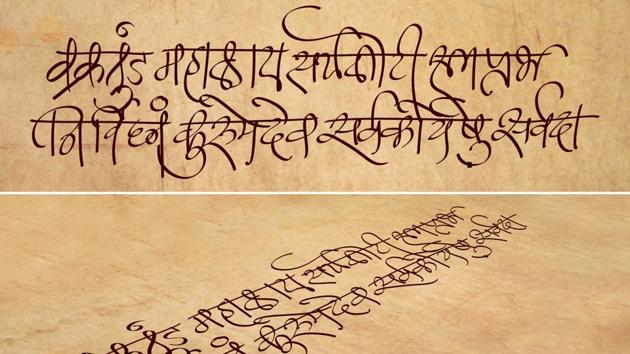 वक्रतुंड महाकाय सूर्यकोटी समप्रभ
निर्विघ्नं कुरुमेदेव सर्वकार्येषु सर्वदा
वक्रतुंड महाकाय सूर्यकोटी समप्रभ
कुरुमेदेव सर्वकार्येषु सर्वदा